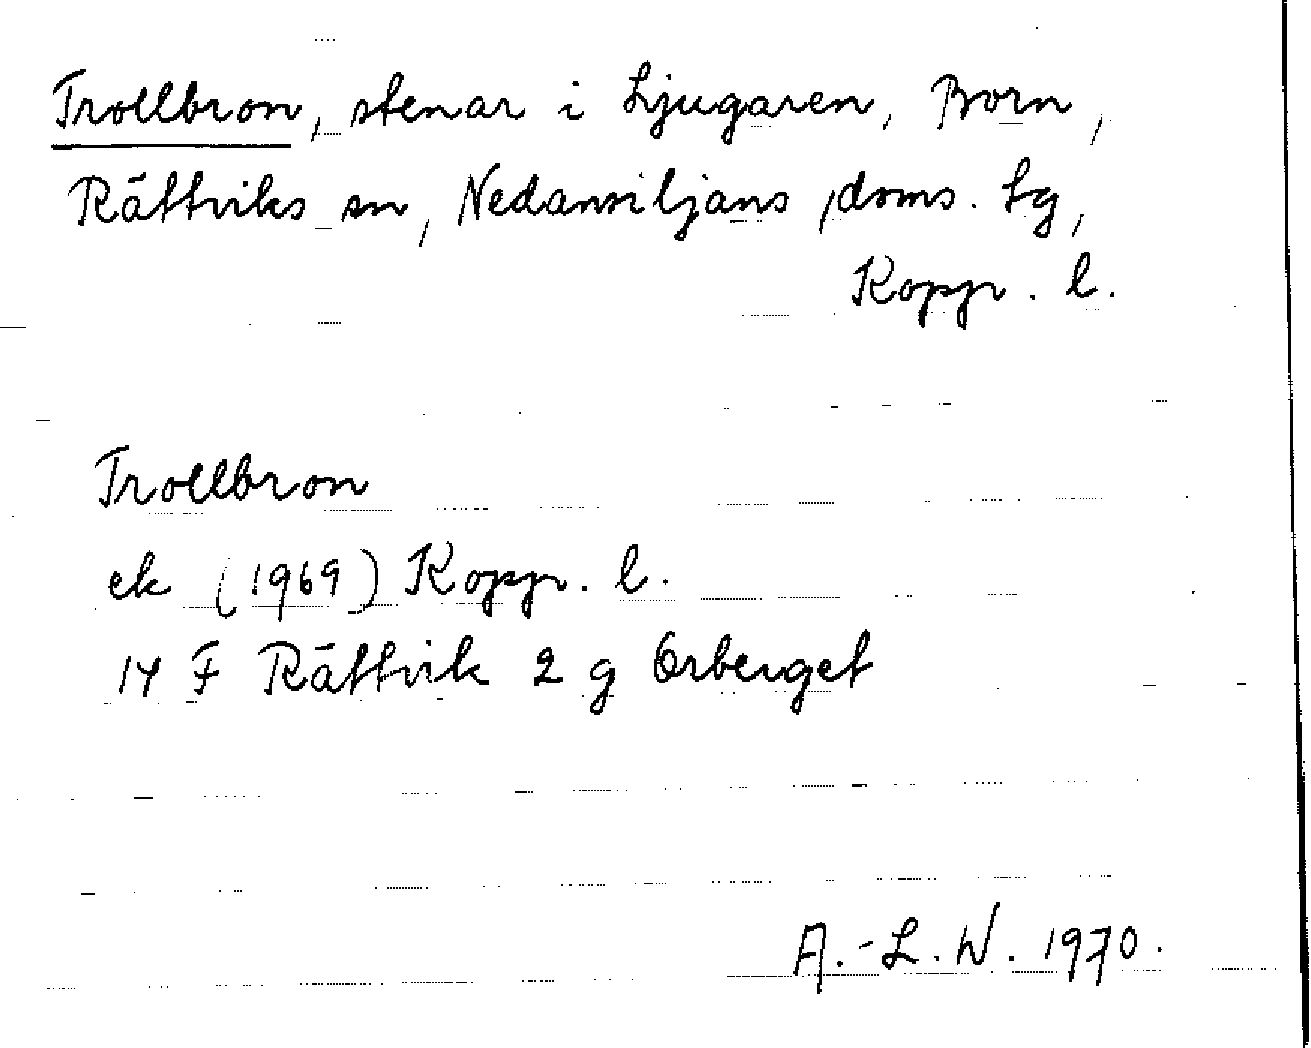 Trollbron, stenar i Ljugaren, Born,
Rättviks sn, Nedansiljans doms. lg,
Koppr. l.
Trollbron
ek (1969) Koppr. l.
14 F Rättvik 2 g Orberget
A.-L. W. 1970.